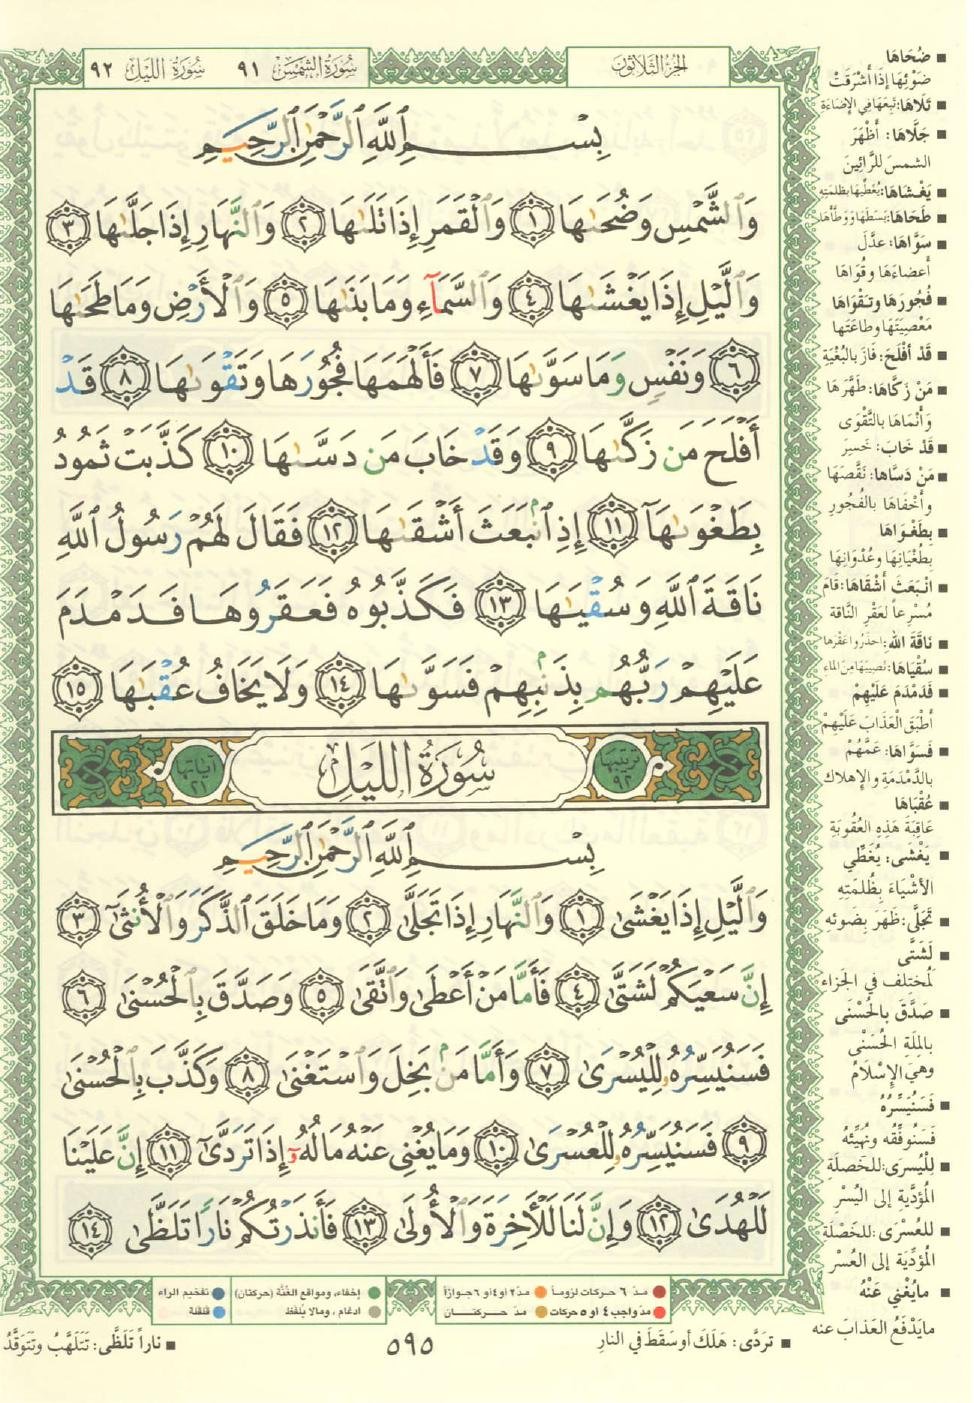 سُورَةُ اللَّيْل ٩٢ سُورَةُ الشَّمْس ٩١ الجُزءُ الثَّلَاثُونَ
بِسْمِ ٱللَّهِ ٱلرَّحْمَٰنِ ٱلرَّحِيمِ
وَٱلشَّمْسِ وَضُحَىٰهَا ١ وَٱلْقَمَرِ إِذَا تَلَىٰهَا ٢ وَٱلنَّهَارِ إِذَا جَلَّىٰهَا ٣
وَٱلَّيْلِ إِذَا يَغْشَىٰهَا ٤ وَٱلسَّمَآءِ وَمَا بَنَىٰهَا ٥ وَٱلْأَرْضِ وَمَا طَحَىٰهَا
٦ وَنَفْسٍ وَمَا سَوَّىٰهَا ٧ فَأَلْهَمَهَا فُجُورَهَا وَتَقْوَىٰهَا ٨ قَدْ
أَفْلَحَ مَن زَكَّىٰهَا ٩ وَقَدْ خَابَ مَن دَسَّىٰهَا ١٠ كَذَّبَتْ ثَمُودُ
بِطَغْوَىٰهَآ ١١ إِذِ ٱنۢبَعَثَ أَشْقَىٰهَا ١٢ فَقَالَ لَهُمْ رَسُولُ ٱللَّهِ
نَاقَةَ ٱللَّهِ وَسُقْيَٰهَا ١٣ فَكَذَّبُوهُ فَعَقَرُوهَا فَدَمْدَمَ
عَلَيْهِمْ رَبُّهُم بِذَنۢبِهِمْ فَسَوَّىٰهَا ١٤ وَلَا يَخَافُ عُقْبَٰهَا ١٥
ترتيبها ٩٢ سُورَةُ اللَّيْلِ آياتها ٢١
بِسْمِ ٱللَّهِ ٱلرَّحْمَٰنِ ٱلرَّحِيمِ
وَٱلَّيْلِ إِذَا يَغْشَىٰ ١ وَٱلنَّهَارِ إِذَا تَجَلَّىٰ ٢ وَمَا خَلَقَ ٱلذَّكَرَ وَٱلْأُنثَىٰٓ ٣
إِنَّ سَعْيَكُمْ لَشَتَّىٰ ٤ فَأَمَّا مَنْ أَعْطَىٰ وَٱتَّقَىٰ ٥ وَصَدَّقَ بِٱلْحُسْنَىٰ ٦
فَسَنُيَسِّرُهُۥ لِلْيُسْرَىٰ ٧ وَأَمَّا مَنۢ بَخِلَ وَٱسْتَغْنَىٰ ٨ وَكَذَّبَ بِٱلْحُسْنَىٰ
٩ فَسَنُيَسِّرُهُۥ لِلْعُسْرَىٰ ١٠ وَمَا يُغْنِى عَنْهُ مَالُهُۥٓ إِذَا تَرَدَّىٰٓ ١١ إِنَّ عَلَيْنَا
لَلْهُدَىٰ ١٢ وَإِنَّ لَنَا لَلْءَاخِرَةَ وَٱلْأُولَىٰ ١٣ فَأَنذَرْتُكُمْ نَارًا تَلَظَّىٰ ١٤
ضُحَاهَا
ضَوْئِهَا إِذَا أَشْرَقَتْ
تَلَاهَا: تَبِعَهَا فِي الإضَاءَةِ
جَلَّاهَا: أَظْهَرَ
الشمسَ للرَّائِينَ
يَغْشَاهَا: يُغَطِّيهَا بِظُلمتِهِ
طَحَاهَا: بَسَطَهَا وَوَطَّأَهَا
سَوَّاهَا: عَدَّلَ
أعضَاءَهَا وقُوَاهَا
فُجُورَهَا وتَقْوَاهَا
مَعْصِيَتَهَا وطاعَتَها
قَدْ أفْلَحَ: فَازَ بالبُغْيَةِ
مَنْ زَكَّاهَا: طَهَّرَهَا
وَأَنْمَاهَا بالتَّقْوَى
قَدْ خَابَ: خَسِرَ
مَنْ دَسَّاهَا: نَقَّصَهَا
وأَخْفَاهَا بالفُجُورِ
بِطَغْوَاهَا
بِطُغْيَانِهَا وعُدْوَانِهَا
انْبَعَثَ أشْقَاهَا: قَامَ
مُسْرِعاً لِعَقْرِ النَّاقَة
نَاقَةَ الله: احذَرُوا عَقْرَهَا
سُقْيَاهَا: نَصِيبَهَا مِنَ المَاءِ
فَدَمْدَمَ عَلَيْهِمْ
أَطْبَقَ العَذَابَ عَلَيهِمْ
فَسَوَّاهَا: عَمَّهُمْ
بالدَّمْدَمَةِ والإهلاك
عُقْبَاهَا
عَاقِبَةَ هَذِهِ العُقُوبَةِ
يَغْشَى: يُغَطِّي
الأشْيَاءَ بِظُلمَتِهِ
تَجَلَّى: ظَهَرَ بِضَوئِهِ
لَشَتَّى
لَمُختلف في الجَزاء
صَدَّقَ بالحُسْنَى
بالمِلَّةِ الحُسْنَى
وهيَ الإسْلَامُ
فَسَنُيَسِّرُهُ
فَسَنُوفِّقُه ونُهَيِّئُهُ
لِلْيُسرى: للخَصلَةِ
المُؤدِّيَةِ إلى اليُسْرِ
للعُسْرَى: للخَصْلَةِ
المُؤدِّيَة إلى العُسْرِ
مايُغْنِي عَنْهُ
مايَدْفَعُ العَذابَ عنه
مدّ ٦ حركات لزوماً مدّ ٢ أو ٤ أو ٦ جوازاً إخفاء، ومواقع الغُنَّة (حركتان) تفخيم الراء
مدّ واجب ٤ أو ٥ حركات مدّ حركتان ادغام، وما لا يُلفظ قلقلة
تَرَدَّى: هَلَكَ أو سَقَطَ في النارِ ٥٩٥ ناراً تَلَظَّى: تَتَلَهَّبُ وتَتَوَقَّدُ